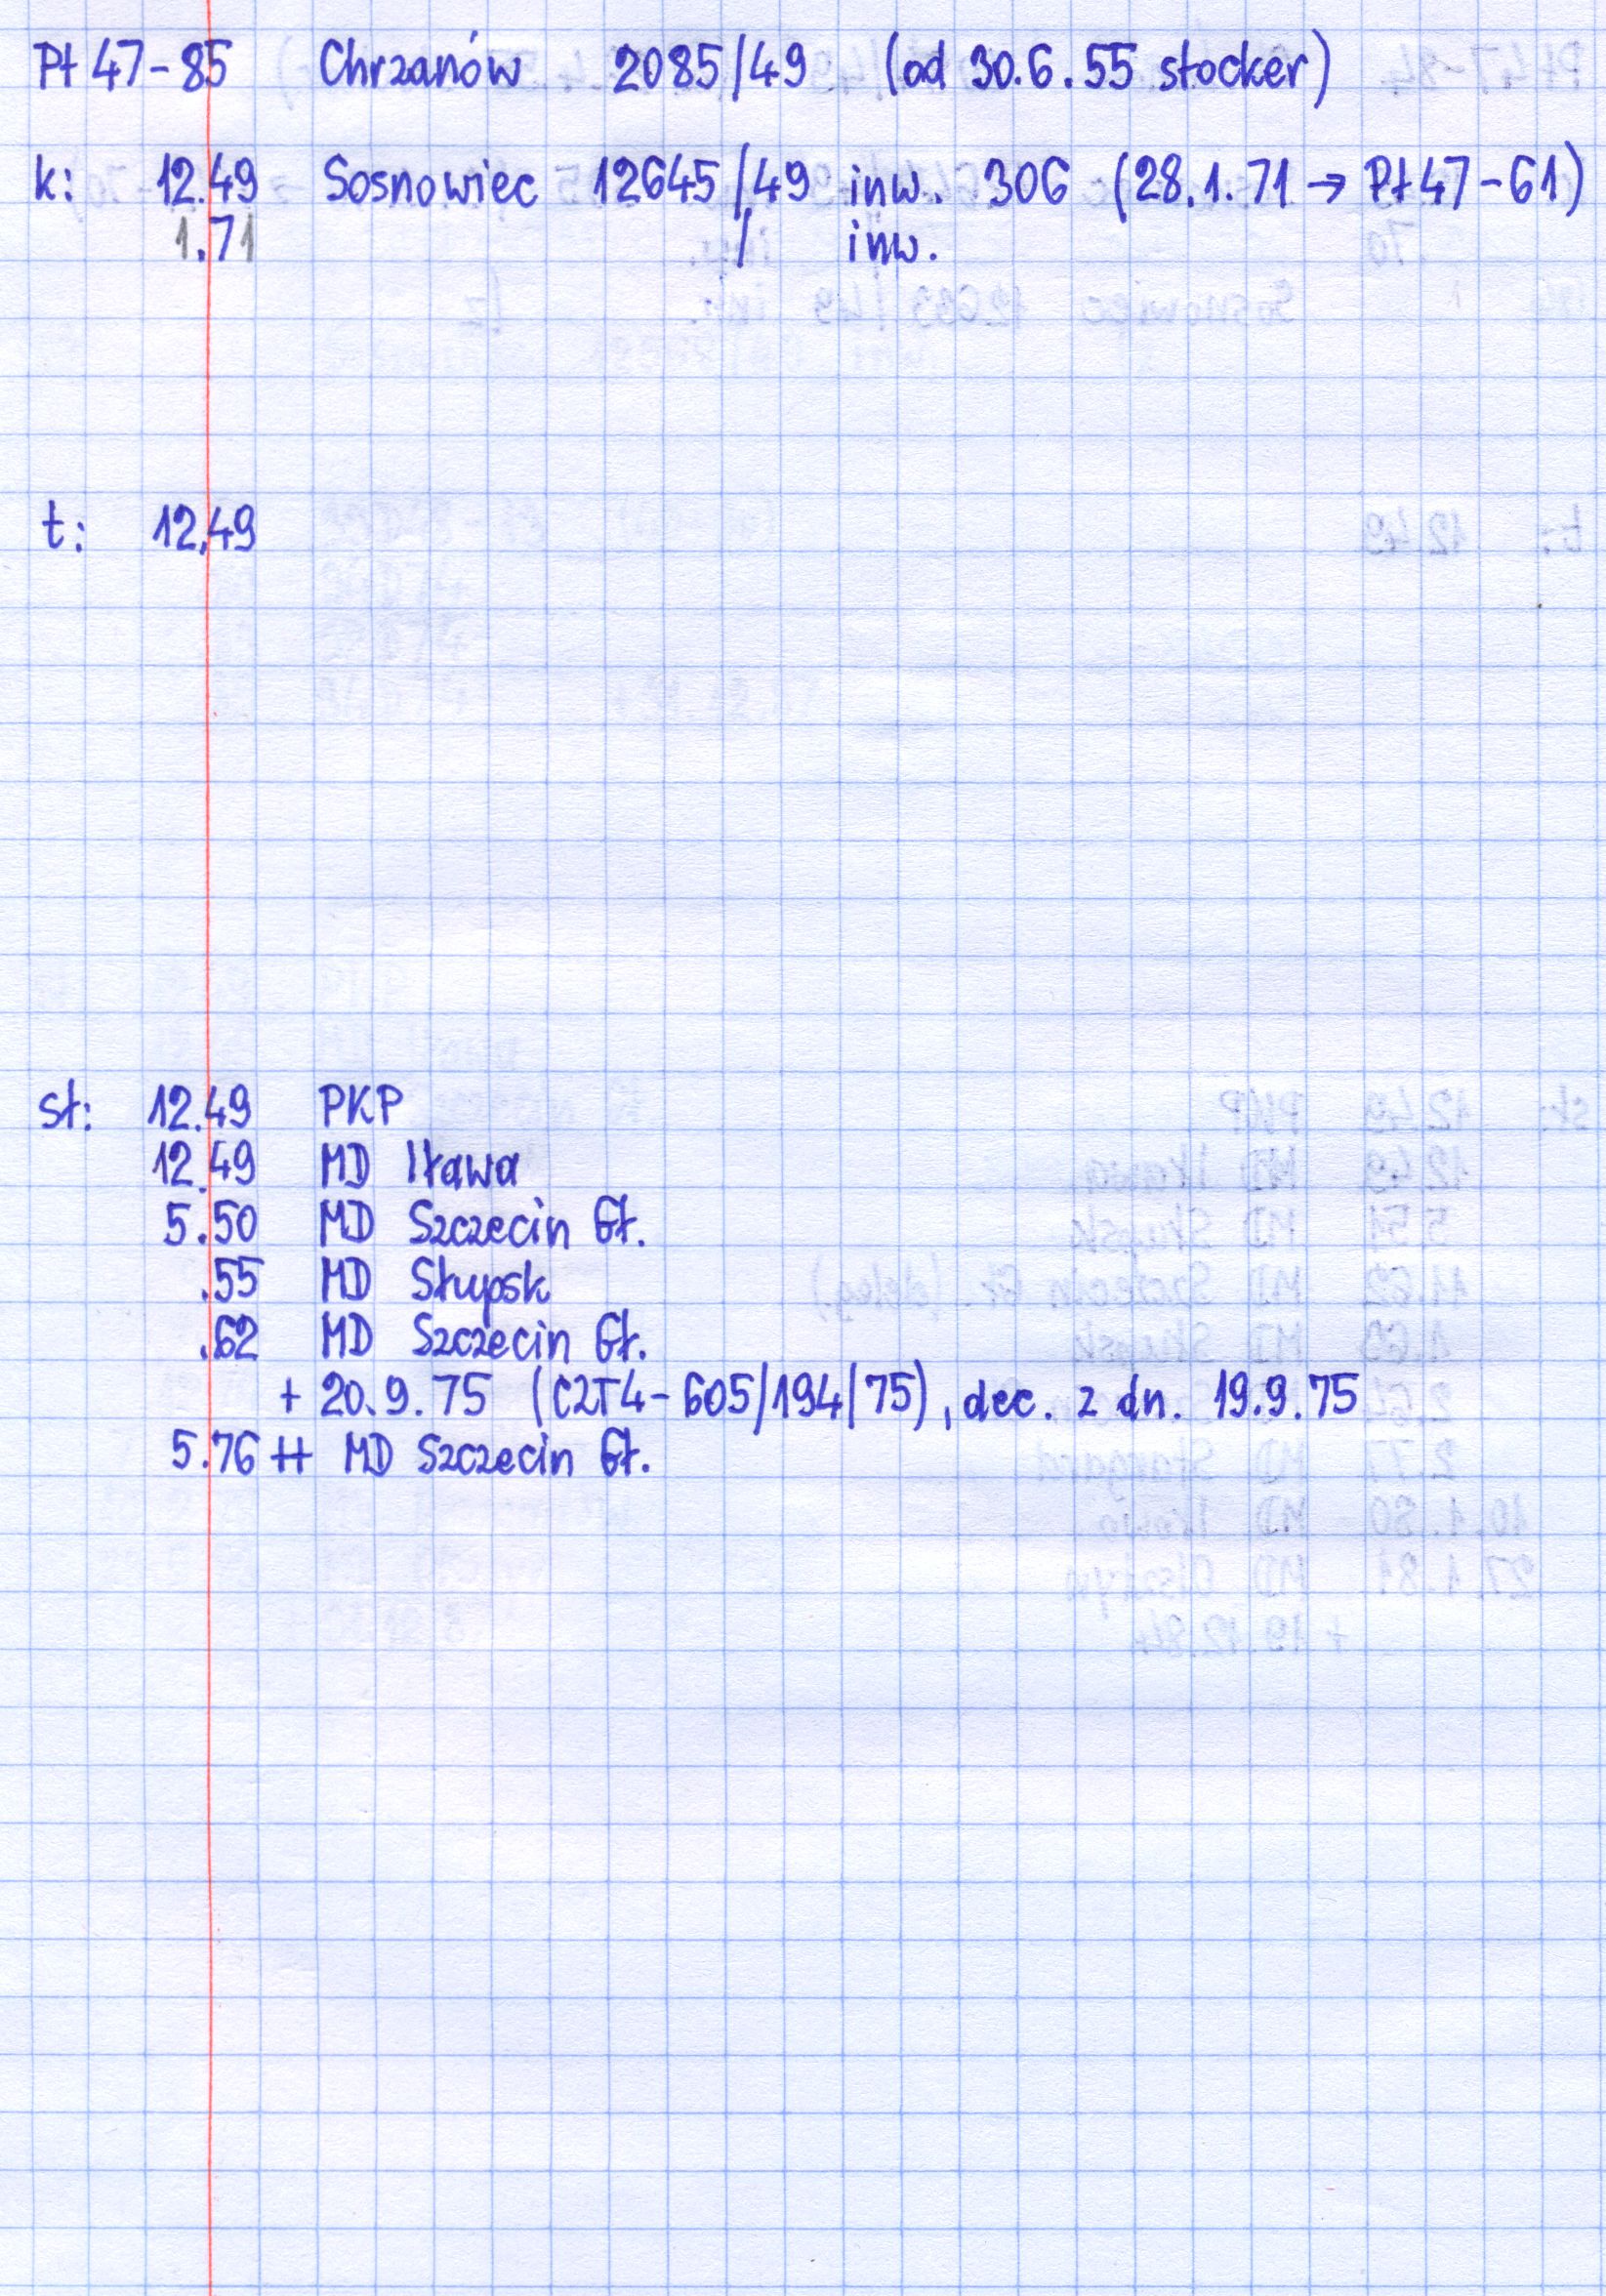 Pt 47-85 Chrzanów 2085/49 (od 30.6.55 stocker)
k: 12.49 Sosnowiec 12645/49 inw. 306 (28.1.71 → Pt 47-61)
1.71 / inw.
t: 12.49
st: 12.49 PKP
12.49 MD Iława
5.50 MD Szczecin Gł.
.55 MD Słupsk
.62 MD Szczecin Gł.
+ 20.9.75 (CZT4-605/194/75), dec. z dn. 19.9.75
5.76 ++ MD Szczecin Gł.